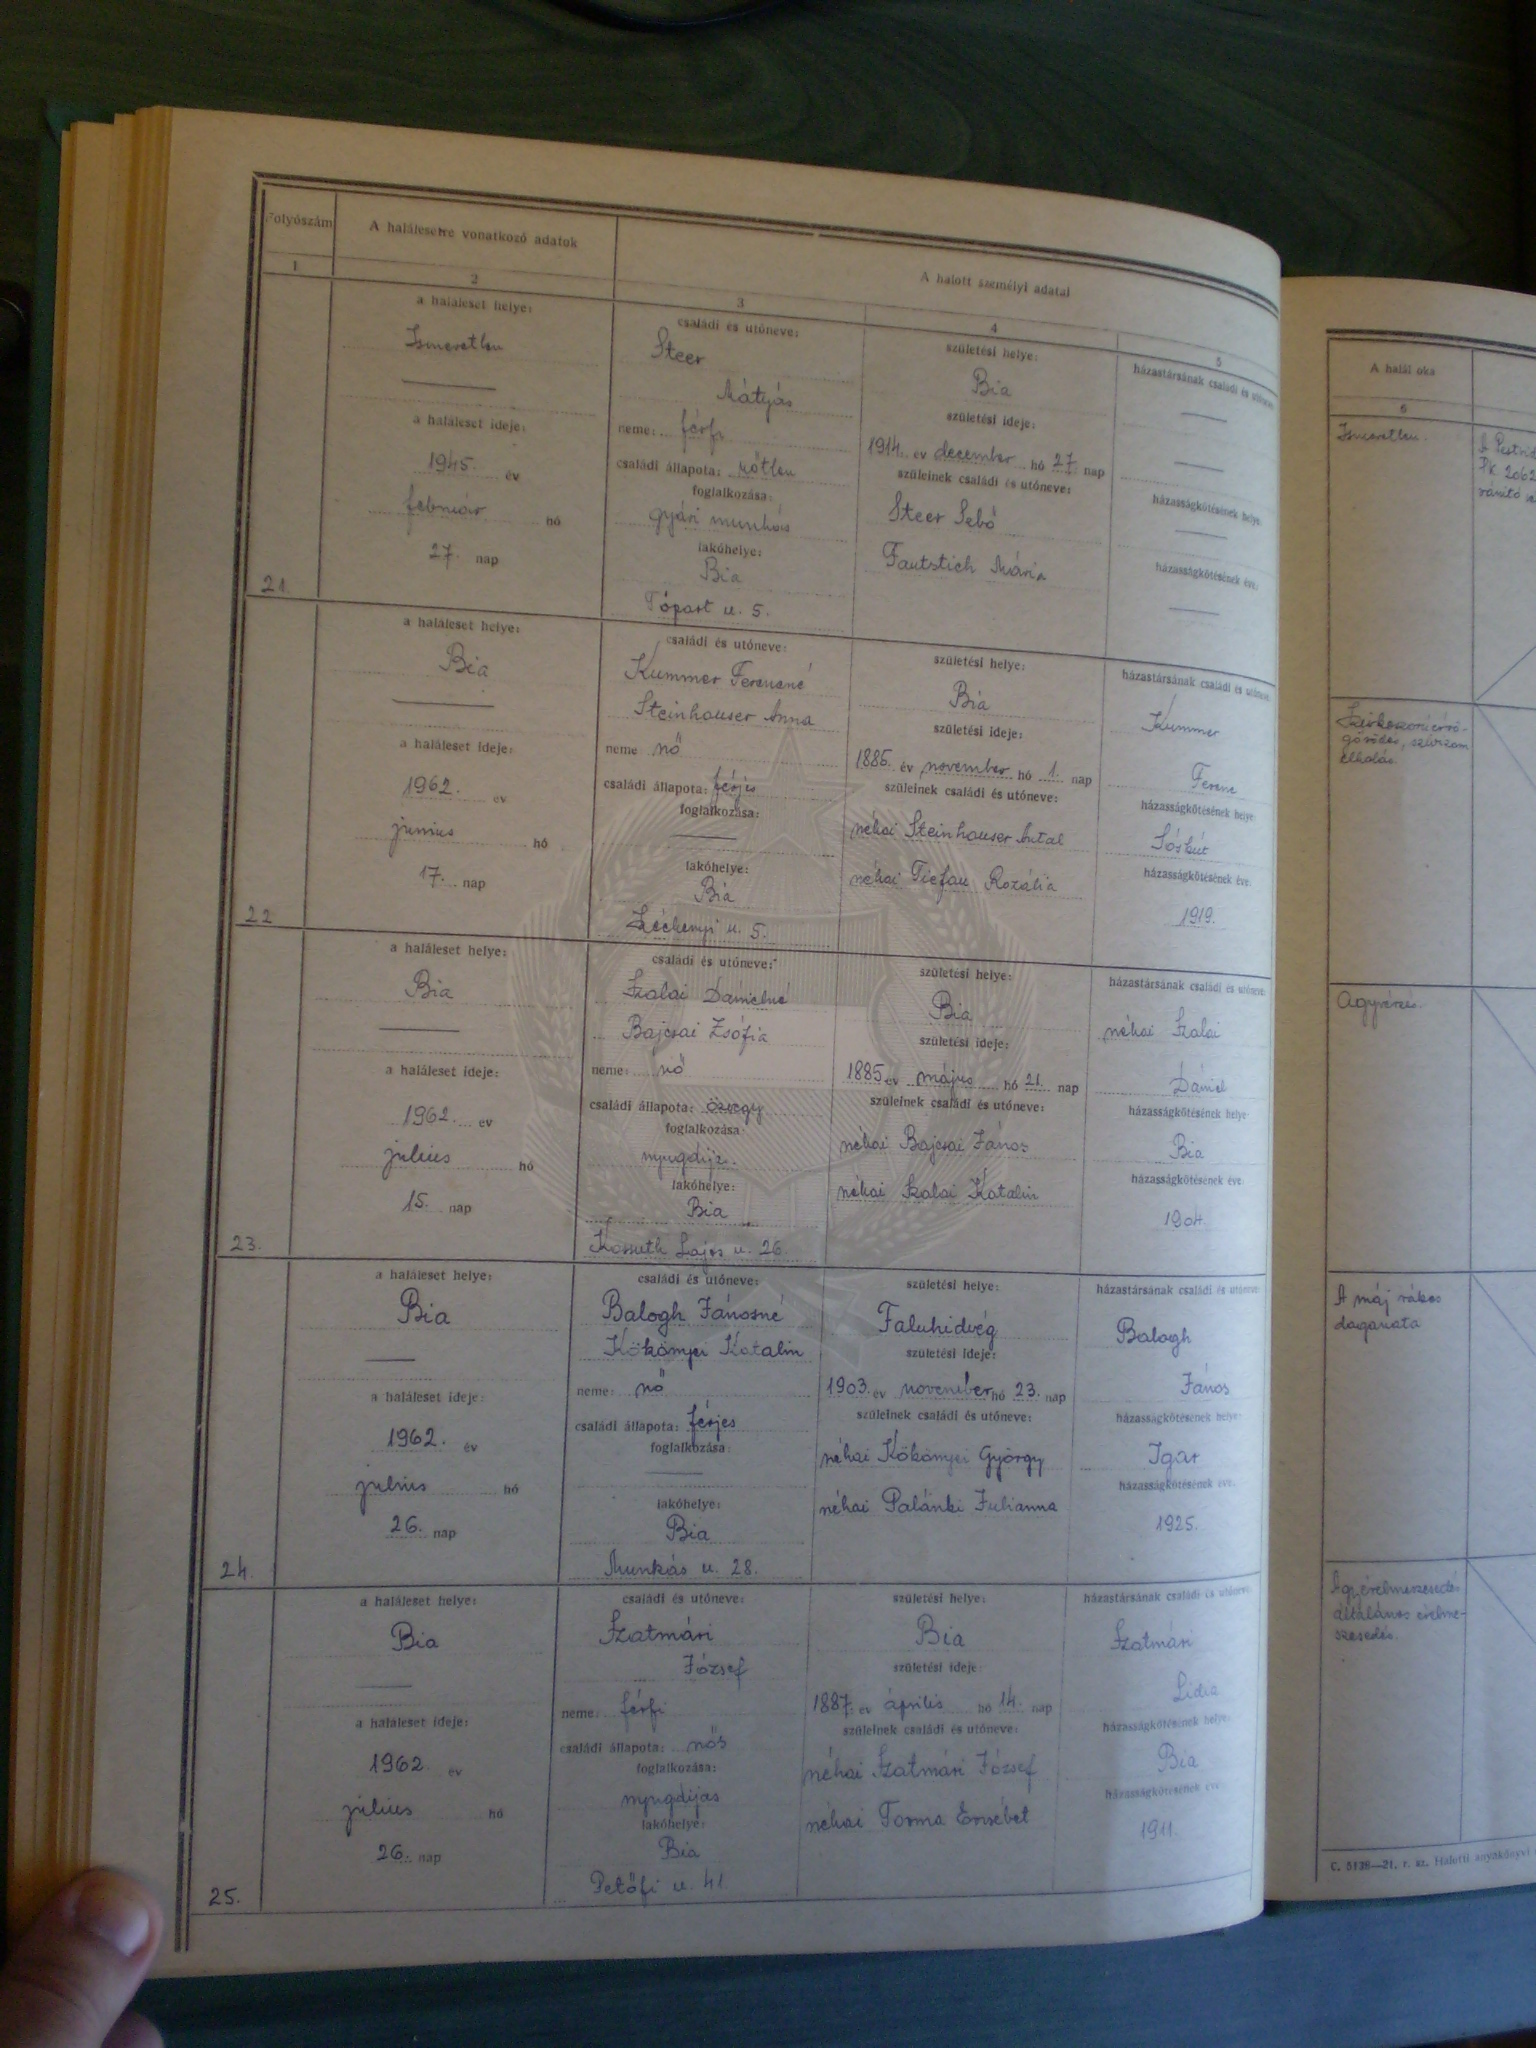 Folyószám
A halálesetre vonatkozó adatok
A halott személyi adatai
1
2
3
4
5
a haláleset helye:
Ismeretlen
a haláleset ideje:
1945. év
február hó
27. nap
21.
családi és utóneve:
Steer
Mátyás
neme: férfi
családi állapota: nőtlen
foglalkozása:
gyári munkás
lakóhelye:
Bia
Tópart u. 5.
születési helye:
Bia
születési ideje:
1914. év december hó 27. nap
szüleinek családi és utóneve:
Steer Sebő
Fautstich Mária
házastársának családi és utóneve:
házasságkötésének helye:
házasságkötésének éve:
a haláleset helye:
Bia
a haláleset ideje:
1962. év
június hó
17. nap
22
családi és utóneve:
Kummer Ferencné
Steinhauser Anna
neme nő
családi állapota: férjes
foglalkozása:
lakóhelye:
Bia
Széchenyi u. 5.
születési helye:
Bia
születési ideje:
1886. év november hó 1. nap
szüleinek családi és utóneve:
néhai Steinhauser Antal
néhai Tiefau Rozália
házastársának családi és utóneve:
Kummer
Ferenc
házasságkötésének helye:
Sóskút
házasságkötésének éve:
1919.
a haláleset helye:
Bia
a haláleset ideje:
1962. év
július hó
15. nap
23.
családi és utóneve:
Szalai Dánielné
Bajcsai Zsófia
neme: nő
családi állapota: özvegy
foglalkozása:
nyugdíja.
lakóhelye:
Bia
Kossuth Lajos u. 26.
születési helye:
Bia
születési ideje:
1885 év május hó 21. nap
szüleinek családi és utóneve:
néhai Bajcsai János
néhai Szalai Katalin
házastársának családi és utóneve:
néhai Szalai
Dániel
házasságkötésének helye:
Bia
házasságkötésének éve:
1904.
a haláleset helye:
Bia
a haláleset ideje:
1962. év
július hó
26. nap
24.
családi és utóneve:
Balogh Jánosné
Kökönyei Katalin
neme: nő
családi állapota: férjes
foglalkozása:
lakóhelye:
Bia
Munkás u. 28.
születési helye:
Faluhidvég
születési ideje:
1903. év november hó 23. nap
szüleinek családi és utóneve:
néhai Kökönyei György
néhai Palánki Julianna
házastársának családi és utóneve:
Balogh
János
házasságkötésének helye:
Igar
házasságkötésének éve:
1925.
a haláleset helye:
Bia
a haláleset ideje:
1962. év
július hó
26. nap
25.
családi és utóneve:
Szatmári
József
neme: férfi
családi állapota: nős
foglalkozása:
nyugdíjas
lakóhelye:
Bia
Petőfi u. 41
születési helye:
Bia
születési ideje:
1887. év április hó 14. nap
szüleinek családi és utóneve:
néhai Szatmári József
néhai Torma Erzsébet
házastársának családi és utóneve:
Szatmári
Lidia
házasságkötésének helye:
Bia
házasságkötésének éve
1911.
A halál oka
6
Ismeretlen.
A Pestvid
Pk. 2062
Szívkoszorúérrö-
gösödés, szívizom
elhalás.
Agyvérzés
A máj rákos
daganata
Agyérelmeszesedés
általános érelme-
szesedés.
C. 5138—21. r. sz. Halotti anyakönyvi